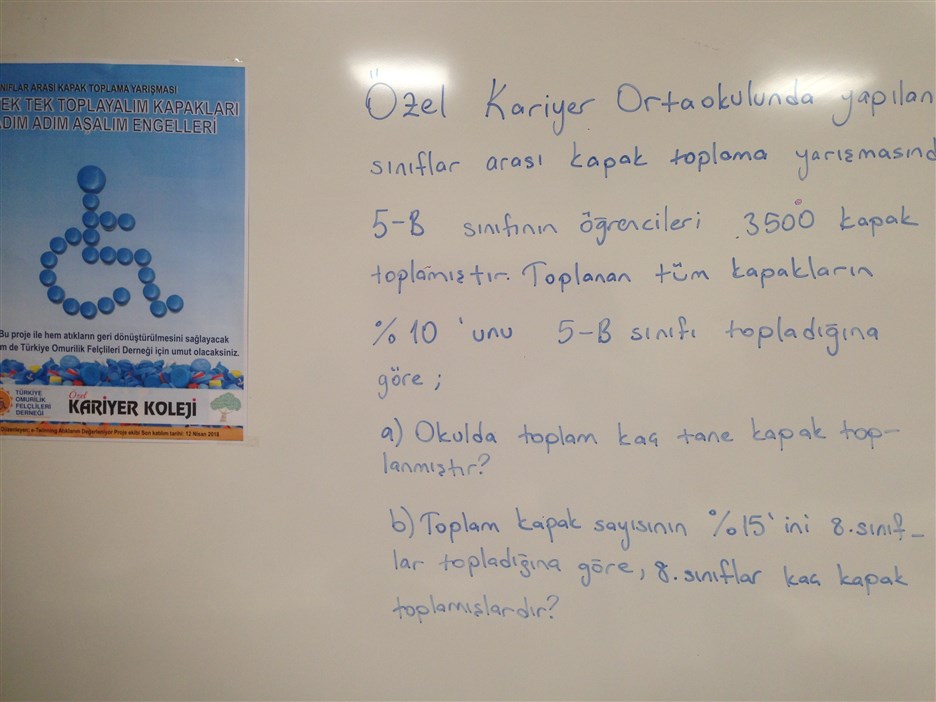 NIFLAR ARASI KAPAK TOPLAMA YARIŞMASI
EK TEK TOPLAYALIM KAPAKLARI
DIM ADIM AŞALIM ENGELLERİ
Bu proje ile hem atıkların geri dönüştürülmesini sağlayacak
m de Türkiye Omurilik Felçlileri Derneği için umut olacaksınız.
TÜRKİYE
OMURİLİK
FELÇLİLERİ
DERNEĞİ
Özel
KARİYER KOLEJİ
Son katılım tarihi: 12 Nisan
Özel Kariyer Ortaokulunda yapılan
sınıflar arası kapak toplama yarışmasınd
5-B sınıfının öğrencileri 3500 kapak
toplamıştır. Toplanan tüm kapakların
%10 'unu 5-B sınıfı topladığına
göre;
a) Okulda toplam kaç tane kapak top-
lanmıştır?
b) Toplam kapak sayısının %15'ini 8.sınıf-
lar topladığına göre, 8.sınıflar kaç kapak
toplamışlardır?